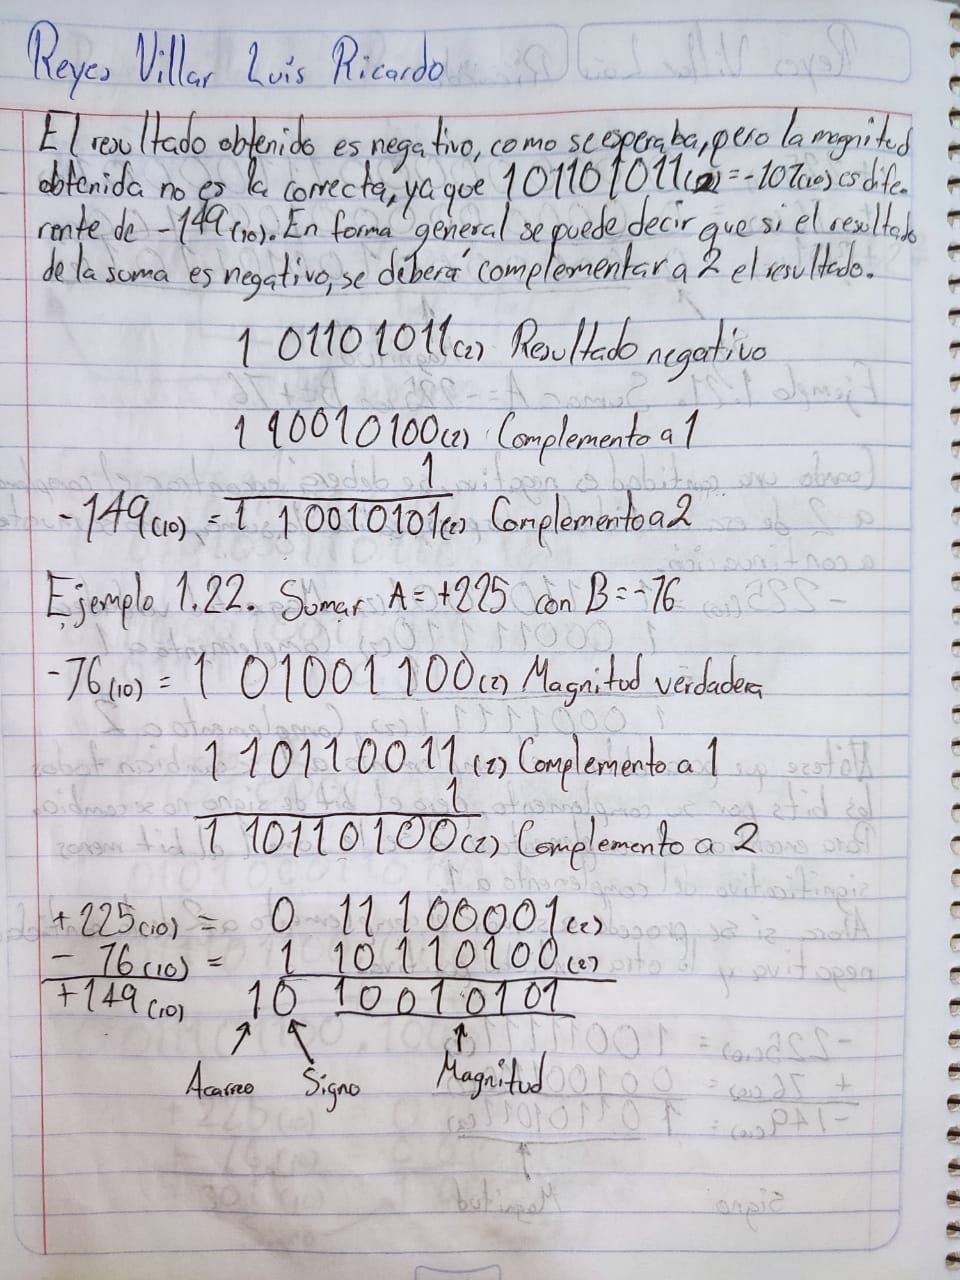 Reyes Villar Luis Ricardo
El resultado obtenido es negativo, como se esperaba, pero la magnitud
obtenida no es la correcta, ya que 101101011(2)=-107(10) es dife-
rente de -149(10). En forma general se puede decir que si el resultado
de la suma es negativo, se deberá complementar a 2 el resultado.
1 01101011(2) Resultado negativo
1 10010100(2) Complemento a 1
1
-149(10) = 1 10010101(2) Complemento a 2
Ejemplo 1.22. Sumar A=+225 con B=-76
-76(10) = 1 01001100(2) Magnitud verdadera
1 10110011(2) Complemento a 1
1
1 10110100(2) Complemento a 2
+225(10) = 0 11100001(2)
- 76(10) = 1 10110100(2)
+149(10) 10 10010101
Acarreo Signo Magnitud